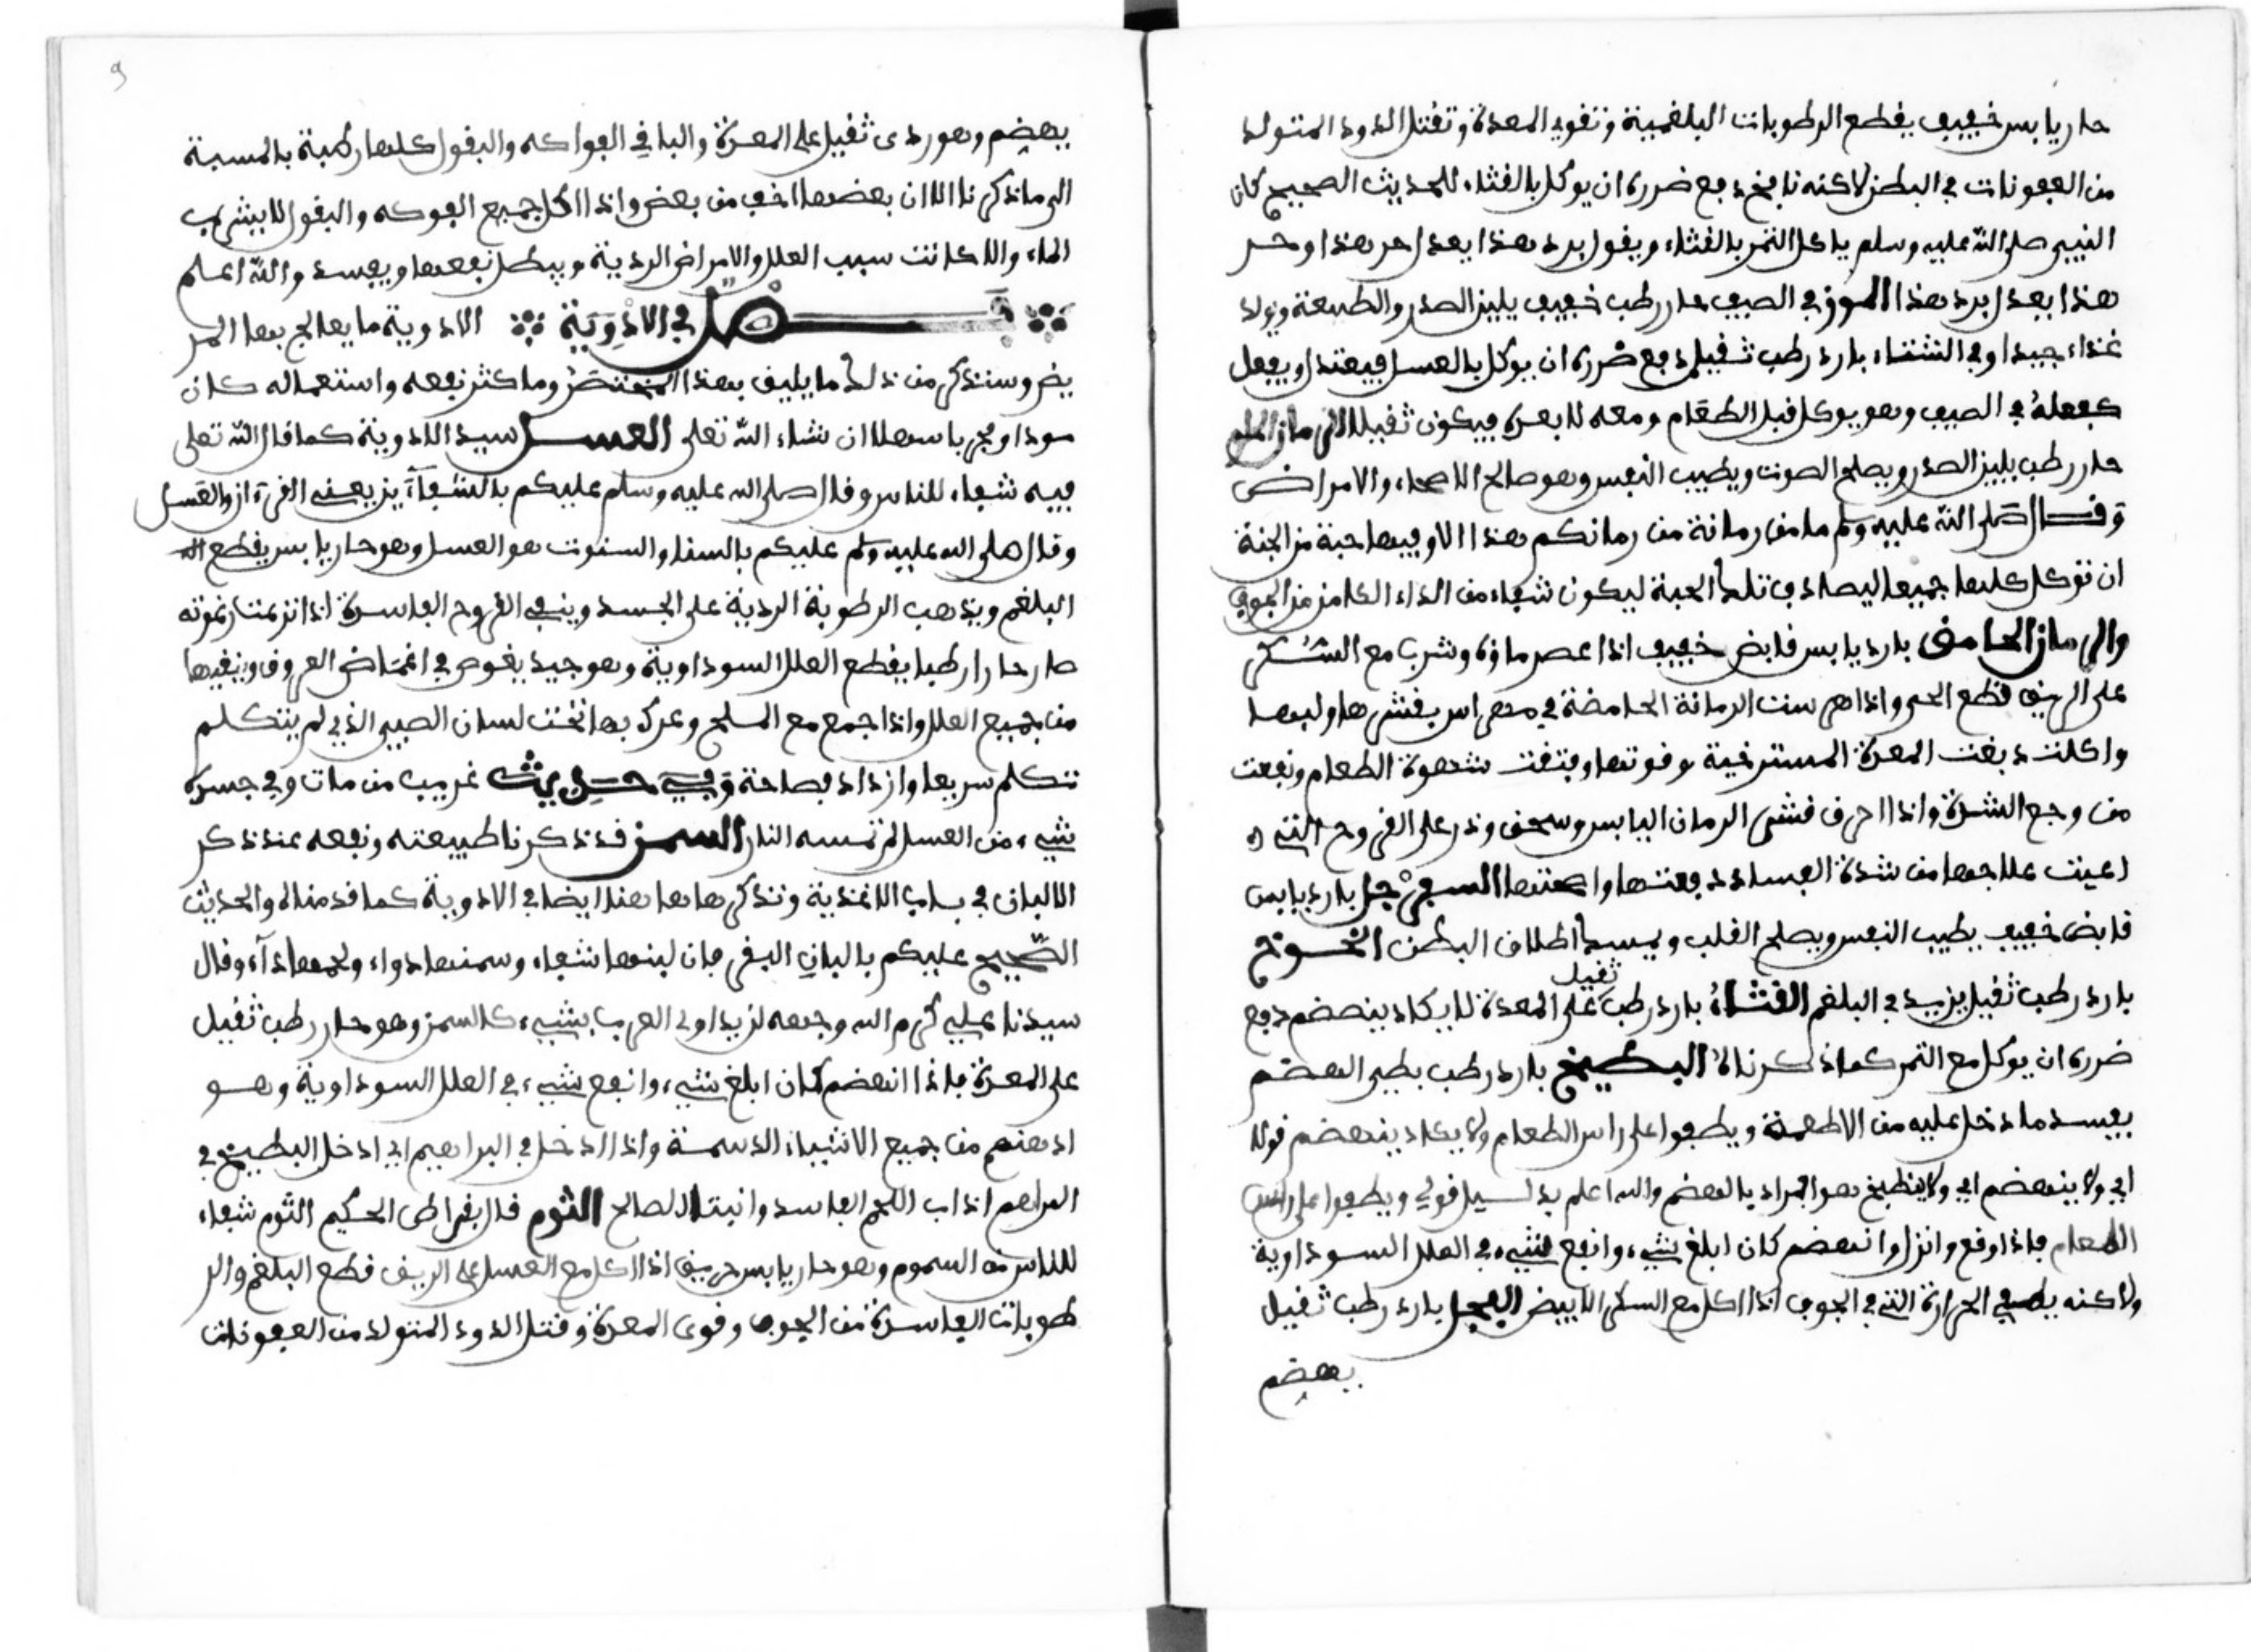 حار يابس خفيف يقطع الرطوبات البلغمية وتقوي المعدة وتقتل الدود المتولد
من العفونات في البطن لاكنه نافخ دفع ضرره ان يوكل بالقثاء للحديث الصحيح كان
النبي صلى الله عليه وسلم ياكل التمر بالقثاء ويقول برد هذا يعدل حر هذا وحر
هذا يعدل برد هذا الموز في الصيف حار رطب خفيف يلين الصدر والطبيعة ويولد
غذاء جيدا وفي الشتاء بارد رطب ثقيل دفع ضرره ان يوكل بالعسل فيعتدل ويفعل
كفعله في الصيف وهو يوكل قبل الطعام ومعه لا بعده فيكون ثقيلا الرمان الحلو
حار رطب يلين الصدر ويصلح الصوت ويطيب النفس وهو صالح للاصحاء والامراض
وقال صلى الله عليه وسلم ما من رمانة من رمانكم هذا الا وفيها حبة من الجنة
ان توكل كلها جميعا ليصادف تلك الحبة ليكون شفاء من الداء الكامن من الجوف
والرمان الحامض بارد يابس قابض خفيف اذا عصر ماؤه وشرب مع السكر
على الريق قطع الحمى واذا هرست الرمانة الحامضة في مهراس بقشرها ولبها
واكلت دبغت المعدة المسترخية وقوتها وفتقت شهوة الطعام ونفعت
من وجع الشدة واذا احرق قشر الرمان اليابس وسحق وذر على القروح التي
اعيت علاجها من شدة الفساد دفعتها واصحتها السفرجل بارد يابس
قابض خفيف يطيب النفس ويصلح القلب ويمسك اطلاق البطن الخوخ
بارد رطب ثقيل يزيد في البلغم القثاء بارد رطب ثقيل على المعدة لا يكاد ينهضم دفع
ضرره ان يوكل مع التمر كما ذكرناه البطيخ بارد رطب بطي الهضم
يفسد ما دخل عليه من الاطعمة ويطفوا على راس الطعام ولا يكاد ينهضم قولا
اي ولا ينهضم اي ولا ينطبخ هو المراد بالهضم والله اعلم بدليل قولي ويطفوا على راس
الطعام فاذا وقع وانزل وانهضم كان ابلغ شيء وانفع شيء في العلل السوداوية
ولاكنه يطفي الحرارة التي في الجوف اذا اكل مع السكر الابيض الفجل بارد رطب ثقيل
يهضم
9
يهضم وهو ردى ثقيل على المعدة والباقي الفواكه والبقول كلها رطبة بالمسبة
الى ما ذكرنا الا ان بعضها اخف من بعض واذا اكل جميع الفوكه والبقول لا يشرب
الماء والا كانت سبب العلل والامراض الردية ويبطل نفعها ويفسد والله اعلم
فصل في الادوية الادوية ما يعالج بها المر
يض وسنذكر من ذلك ما يليق بهذا المختصر وما كثر نفعه واستعماله كان
موداو مجربا سهلا ان شاء الله تعلى العسل سيد الادوية كما قال الله تعلى
فيه شفاء للناس وقال صلى الله عليه وسلم عليكم بالشفاءين يعني القرءان والعسل
وقال صلى الله عليه وسلم عليكم بالسنا والسنوت هو العسل وهو حار يابس يقطع
البلغم ويذهب الرطوبة الردية على الجسد وينفي القروح الفاسدة اذا نزعت رغوته
صار حارا رطبا يقطع العلل السوداوية وهو جيد يغوص في اغماض العروق وينقيها
من جميع العلل واذا جمع مع الملح وعرك بها تحت لسان الصبي الذي لم يتكلم
تتكلم سريعا وازداد فصاحة وفي حديث غريب من مات وفي جسده
شيء من العسل لم تمسه النار السمن قد ذكرنا طبيعته ونفعه عند ذكر
الالبان في باب الاغذية ونذكرها ها هنا ايضا في الادوية كما قدمناه والحديث
الصحيح عليكم بالبان البقر فان لبنها شفاء وسمنها دواء ولحمها داء وقال
سيدنا علي كرم الله وجهه لن يداوى العرب بشيء كالسمن وهو حار رطب ثقيل
على المعدة فاذا انهضم كان ابلغ شيء وانفع شيء في العلل السوداوية وهو
ادهنهم من جميع الاشياء الدسمة واذا الدخل في المراهيم اي ادخل البطيخ في
المراهم اذاب اللحم الفاسد وانبت الصالح الثوم قال بقراطى الحكيم الثوم شفاء
للناس من السموم وهو حار يابس حريف اذا اكل مع العسل على الريق قطع البلغم والر
طوبات الفاسدة من الجوف وقوى المعدة وقتل الدود المتولد من العفونات